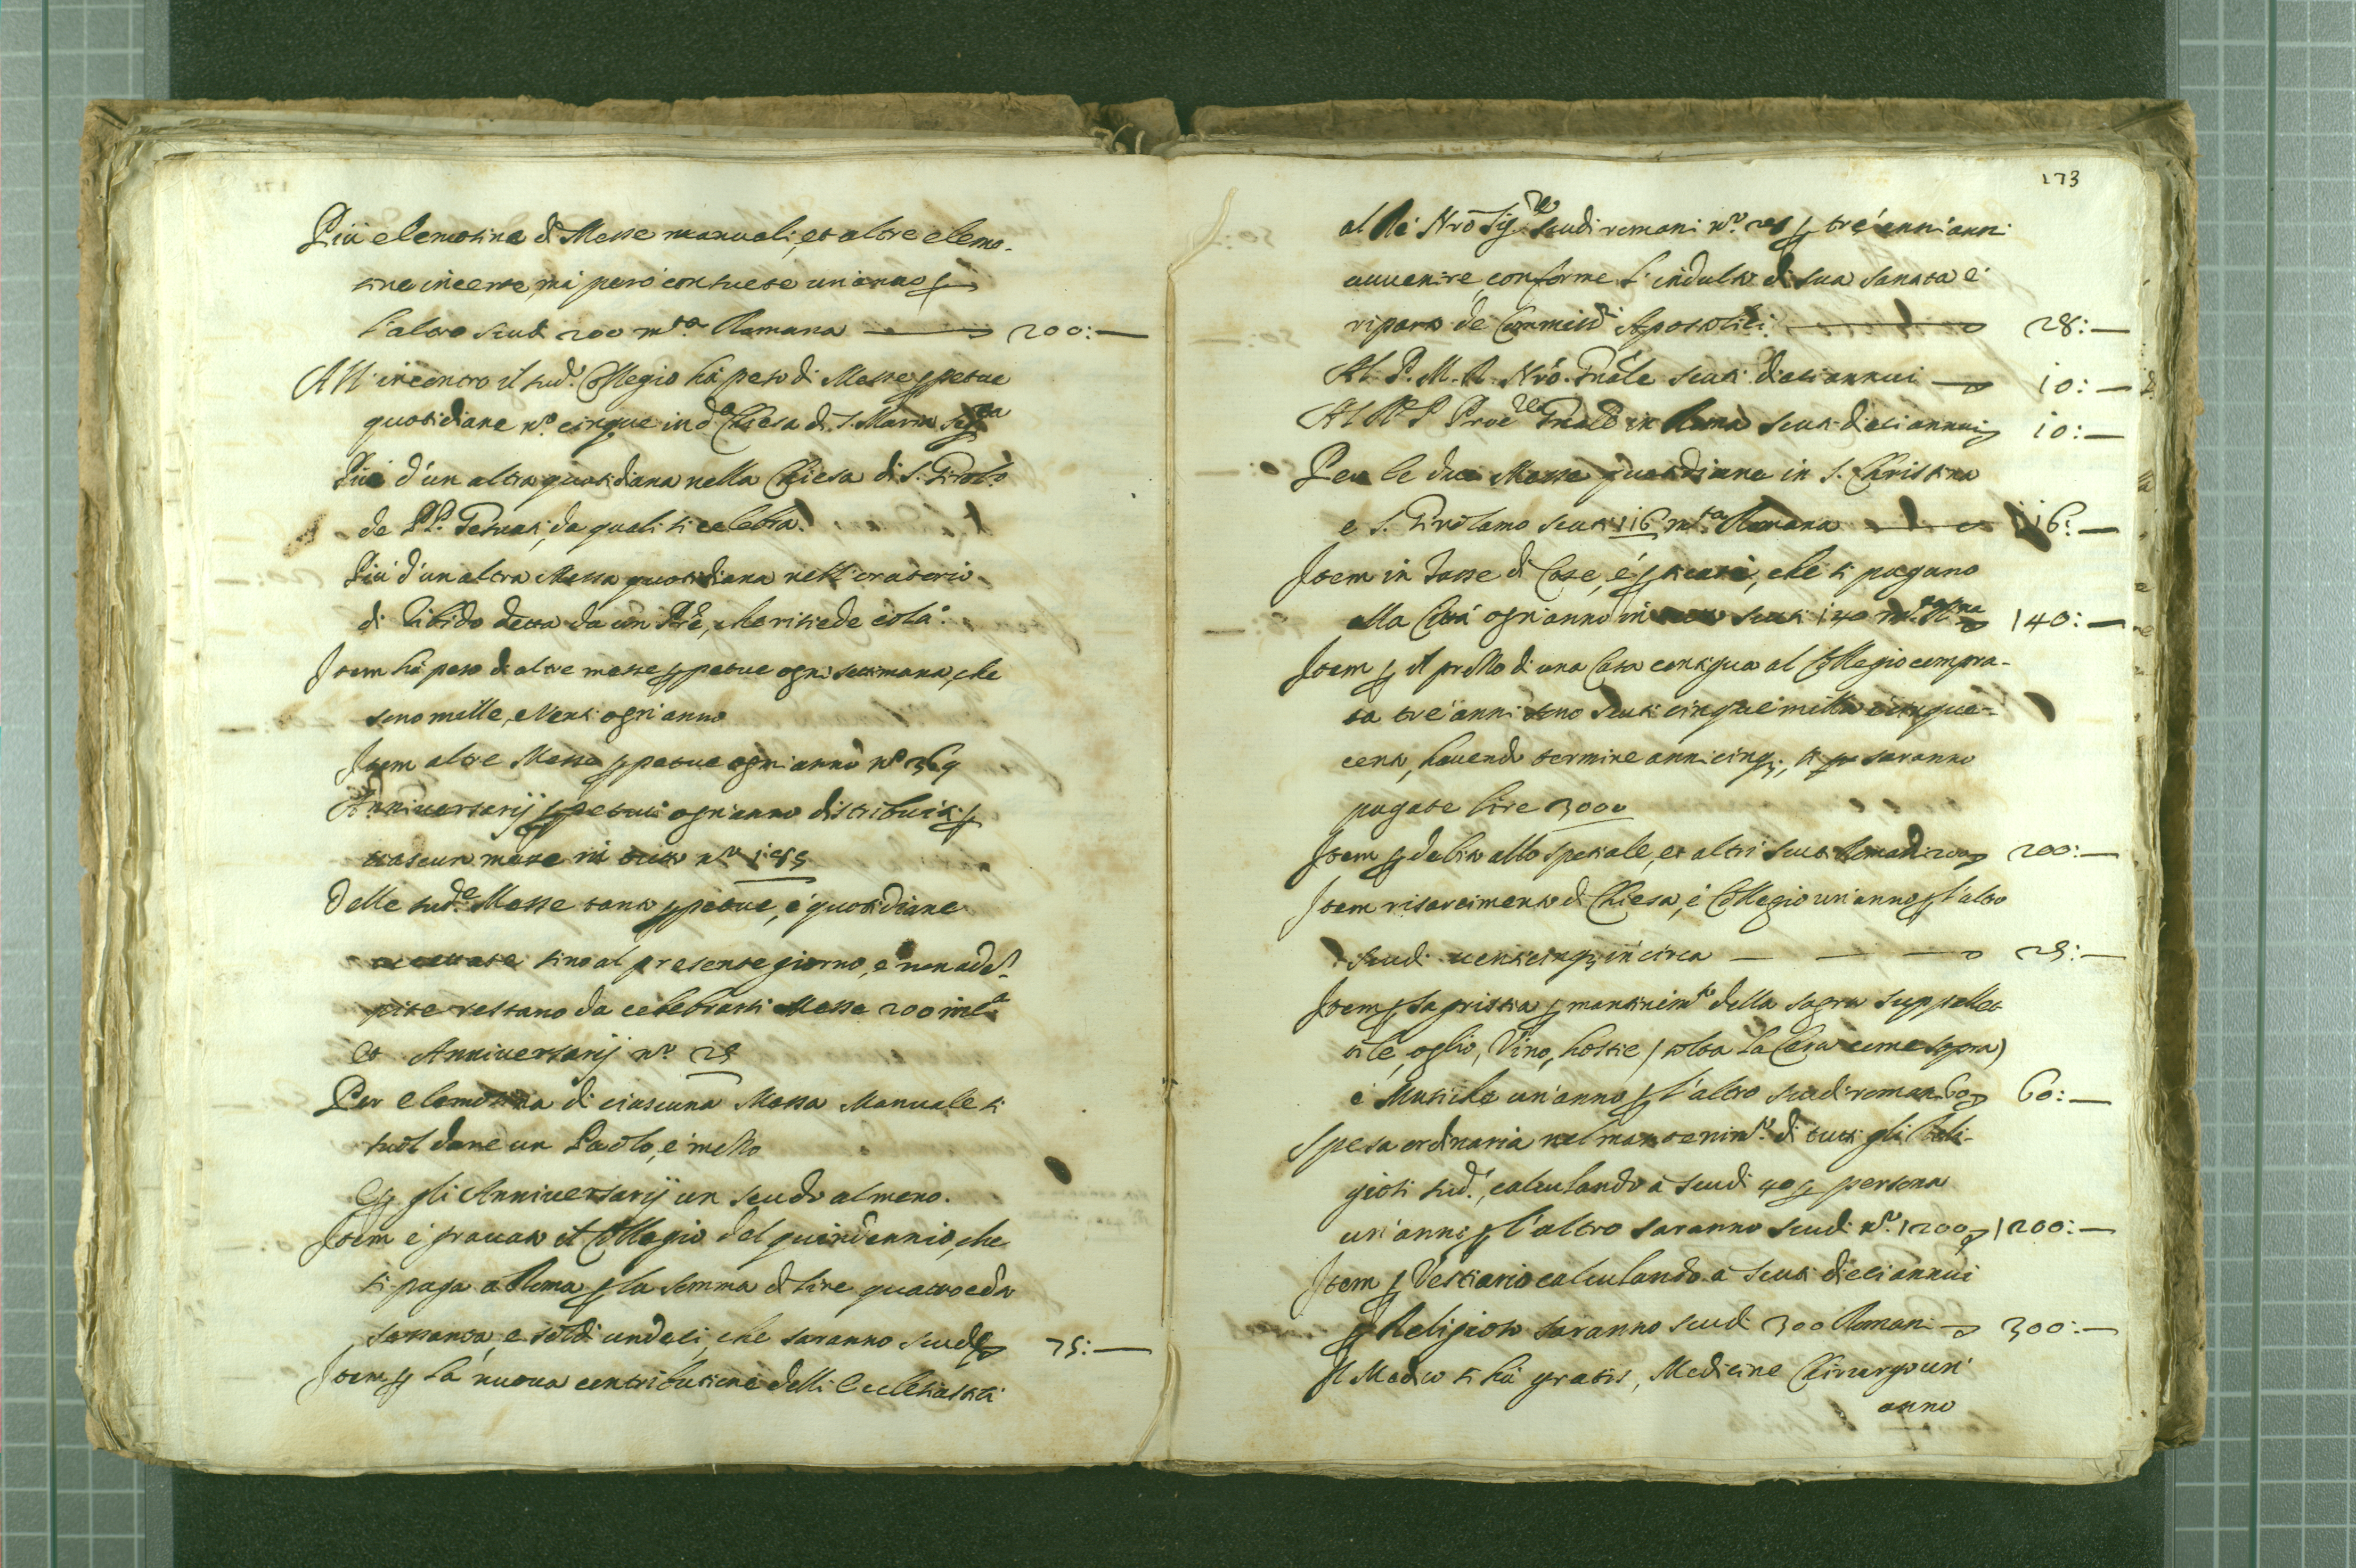 Più elemosina di Messe manuali, et altre elemo-
sine incerte, mà però consuete un'anno p
l'altro scudi 200 m.ta Romana 200:—
All'incontro il sud.o Collegio hà peso di Messe ppetue
quotidiane n.o cinque in d.a Chiesa di S. Maria Seg.ta
Più d'un altra quotidiana nella Chiesa di S. Girol.o
de PP. Gesuati, da quali si celebra.
Più d'un altra Messa quotidiana nell'oratorio
di detta da un Pre, che risiede colà.
Item hà peso di altre messe ppetue ogni settimana, che
sono mille, e Venti ogn'anno
Item altre Messe ppetue ogni anno n.o 369
Anniversarij ppetui ogn'anno distribuiti p
ciascun mese in tutto n.o
Delle sud.e Messe tanto ppetue, e quotidiane
accettate sino al presente giorno, e non adem-
pite restano da celebrarsi Messe 200 in c.a
Et Anniversarij n.o 25
Per elemosina di ciascuna Messa Manuale si
suol dare un Paolo, e mezzo
E p gli Anniversarij un scudo almeno.
Item è gravato il Collegio del quindennio, che
si paga a Roma p la somma di lire quattrocento
sessanta, e soldi undeci, che saranno scudi 75:—
Item p la nuova contributione delli Ecclesiastici
173
al Rè Nrō Sig.re scudi romani n.o 28 p trè anni
avvenire conforme l'indulto di sua Santità e
riparto de Commissi Apostolici 28:—
Al P. M. R. Nrō. Gnāle scuti dieci annui 10:—
Al R. P. Proc.re Gnāle in Roma scuti dieci annui 10:—
Per le due Messe quotidiane in S. Christina
e S. Girolamo scuti 116 m.ta Romana 116:—
Item in Tasse di Case, è che si pagano
alla Città ogn'anno in scuti 140 m.ta R.na 140:—
Item p il prezzo di una Casa contigua al Collegio compra-
ta trè anni sono scuti cinque milla cinque-
cento, havendo termine anni cinq;, si saranno
pagate lire 3000
Item p debito allo spetiale, et altri scuti Romani 200 200:—
Item risarcimento di Chiesa, è Collegio un'anno p l'altro
scudi venticinq; in circa 25:—
Item p sagristia p mantenim.to della sagra suppellet-
tile, oglio, Vino, hostie (tolta la Cera come sopra)
è Musiche un'anno p l'altro scudi romani 60 60:—
Spesa ordinaria nel mantenim.to di tutti gli Reli-
giosi sud.i, calculando à scudi 40 p persona
un'anno p l'altro saranno scudi n.o 1200 1200:—
Item p Vestiario calculando à scuti dieci annui
p Religioso saranno scudi 300 Romani 300:—
Il Medico si hà gratis, Medicine Chirurgo un'
anno